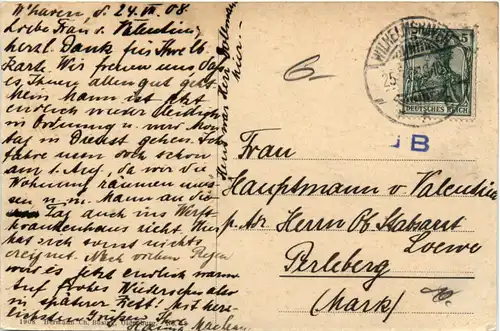 W'haven, d. 24. VII. 08.
Liebe Frau v. Valentini,
herzl. Dank für Ihre lb.
Karte. Wir freuen uns daß
es Ihnen allen gut geht.
Mein Mann ist jetzt
endlich wieder
in Ordnung u. wird Mon
tag in Dienst gehen. Ich
fahre nun doch schon
am 1. Aug, da wir die
Wohnung räumen müs
sen u. m. Mann an die
Tag auch ins Werft
krankenhaus zieht. Hier
hat sich sonst nichts
ereignet. Nach vielem Regen
wird es jetzt endlich warm
Auf frohes Wiedersehen also
in späterer Zeit! Mit herz
lichsten Grüßen Ihre
WILHELMSHAVEN
25
5
DEUTSCHES REICH
B
Frau
Hauptmann v. Valentini
p. Adr. Herrn Ob. Stabsarzt
Loewe
Perleberg
(Mark)
1904